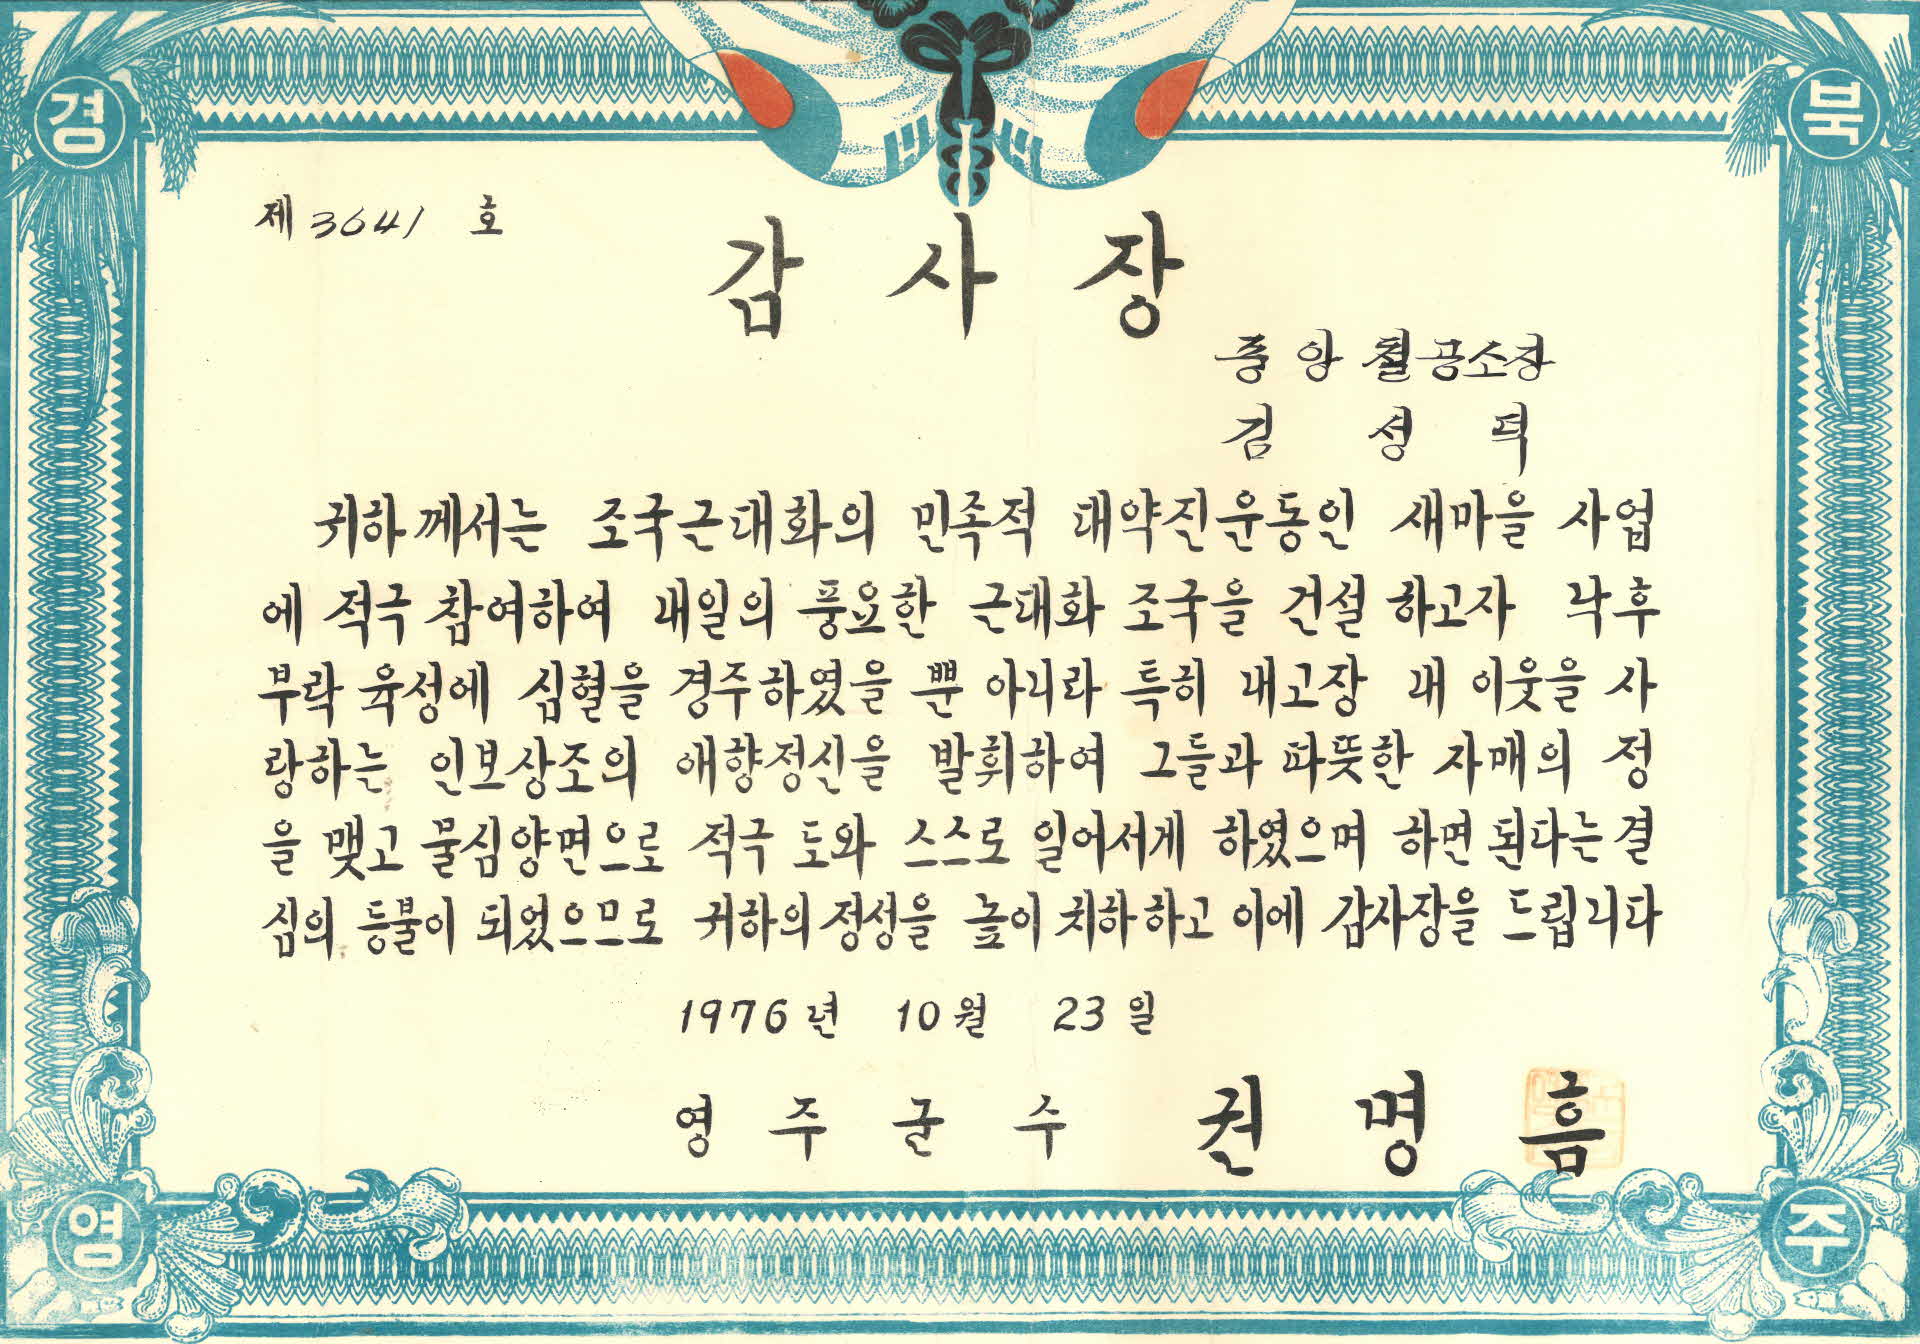 경 북
제 3641 호
감 사 장
중앙 철공소장
김 성 덕
귀하께서는 조국근대화의 민족적 대약진운동인 새마을 사업
에 적극 참여하여 내일의 풍요한 근대화 조국을 건설 하고자 낙후
부락 육성에 심혈을 경주하였을 뿐 아니라 특히 내고장 내 이웃을 사
랑하는 인보상조의 애향정신을 발휘하여 그들과 따뜻한 자매의 정
을 맺고 물심양면으로 적극 도와 스스로 일어서게 하였으며 하면 된다는 결
심의 등불이 되었으므로 귀하의 정성을 높이 치하하고 이에 감사장을 드립니다
1976년 10월 23일
영 주 군 수 권 명 흠
영 주